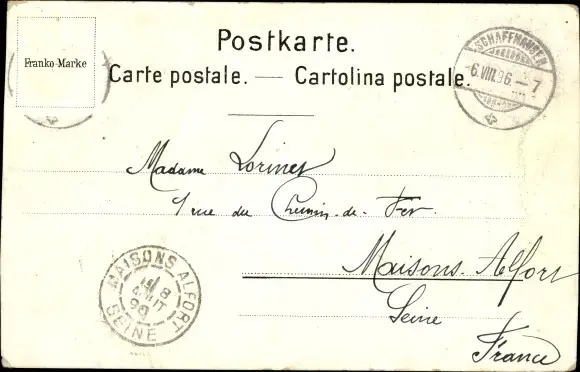 Postkarte.
Franko-Marke
Carte postale. — Cartolina postale.
SCHAFFHAUSEN
6.VIII.96.—7
Madame Lorinet
1 rue du Chemin-de-Fer
Maisons-Alfort
Seine
France
MAISONS ALFORT
8
AOUT
96
SEINE